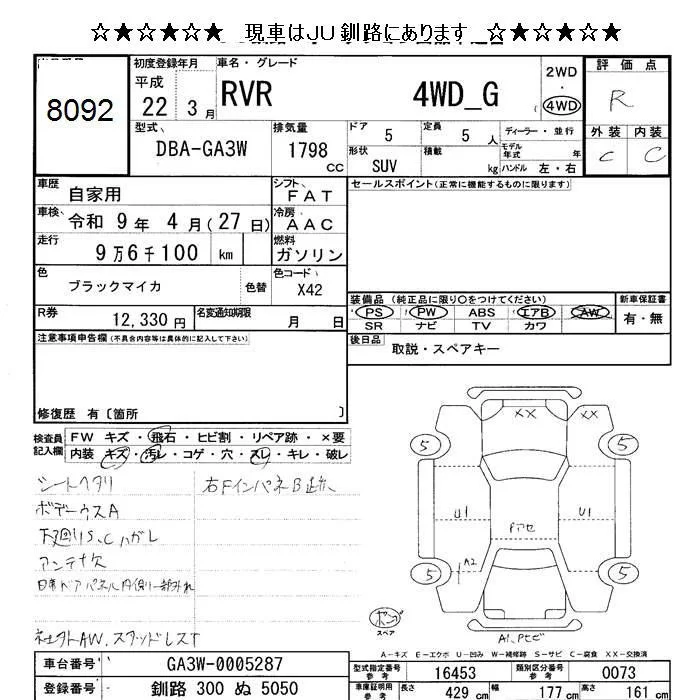 ☆★☆★☆★ 現車はJU釧路にあります ☆★☆★☆★
8092
初度登録年月
平成
22 3月
車名・グレード
RVR 4WD_G
2WD
・
4WD
評価点
R
型式
DBA-GA3W
排気量
1798 cc
ドア
5
定員
5人
形状
SUV
積載
kg
ディーラー・並行
モデル年式 年
ハンドル 左・右
外装 内装
C C
車歴
自家用
シフト
FAT
セールスポイント(正常に機能するものに限ります)
車検
令和 9年 4月(27日)
冷房
AAC
走行
9万6千100 km
燃料
ガソリン
色
ブラックマイカ
色替
色コード
X42
装備品(純正品に限り○をつけてください)
新車保証書
・PS・ ・PW・ ABS ・エアB・ ・AW・
SR ナビ TV カワ
有・無
R券
12,330円
名変通知期限
月 日
後日品
取説・スペアキー
注意事項申告欄(不具合内容等は具体的に記入して下さい)
修復歴 有〔箇所 〕
検査員記入欄
FW キズ・飛石・ヒビ割・リペア跡・×要
内装 キズ・汚レ・コゲ・穴・スレ・キレ・破レ
シートヘタリ
右FインパネB跡
ボデーウスA
下廻りS、Cハガレ
アンテナ欠
社外AW、スタッドレスT
XX
5
5
U1
U1
Pアセ
A2
5
5
スペア
A1、Pヒビ
A-キズ E-エクボ U-凹み W-補修跡 S-サビ C-腐食 XX-交換済
車台番号
GA3W-0005287
型式指定番号
参考
16453
類別区分番号
参考
0073
登録番号
釧路 300 ぬ 5050
車庫証明用
参考
長さ
429 cm
幅
177 cm
高さ
161 cm